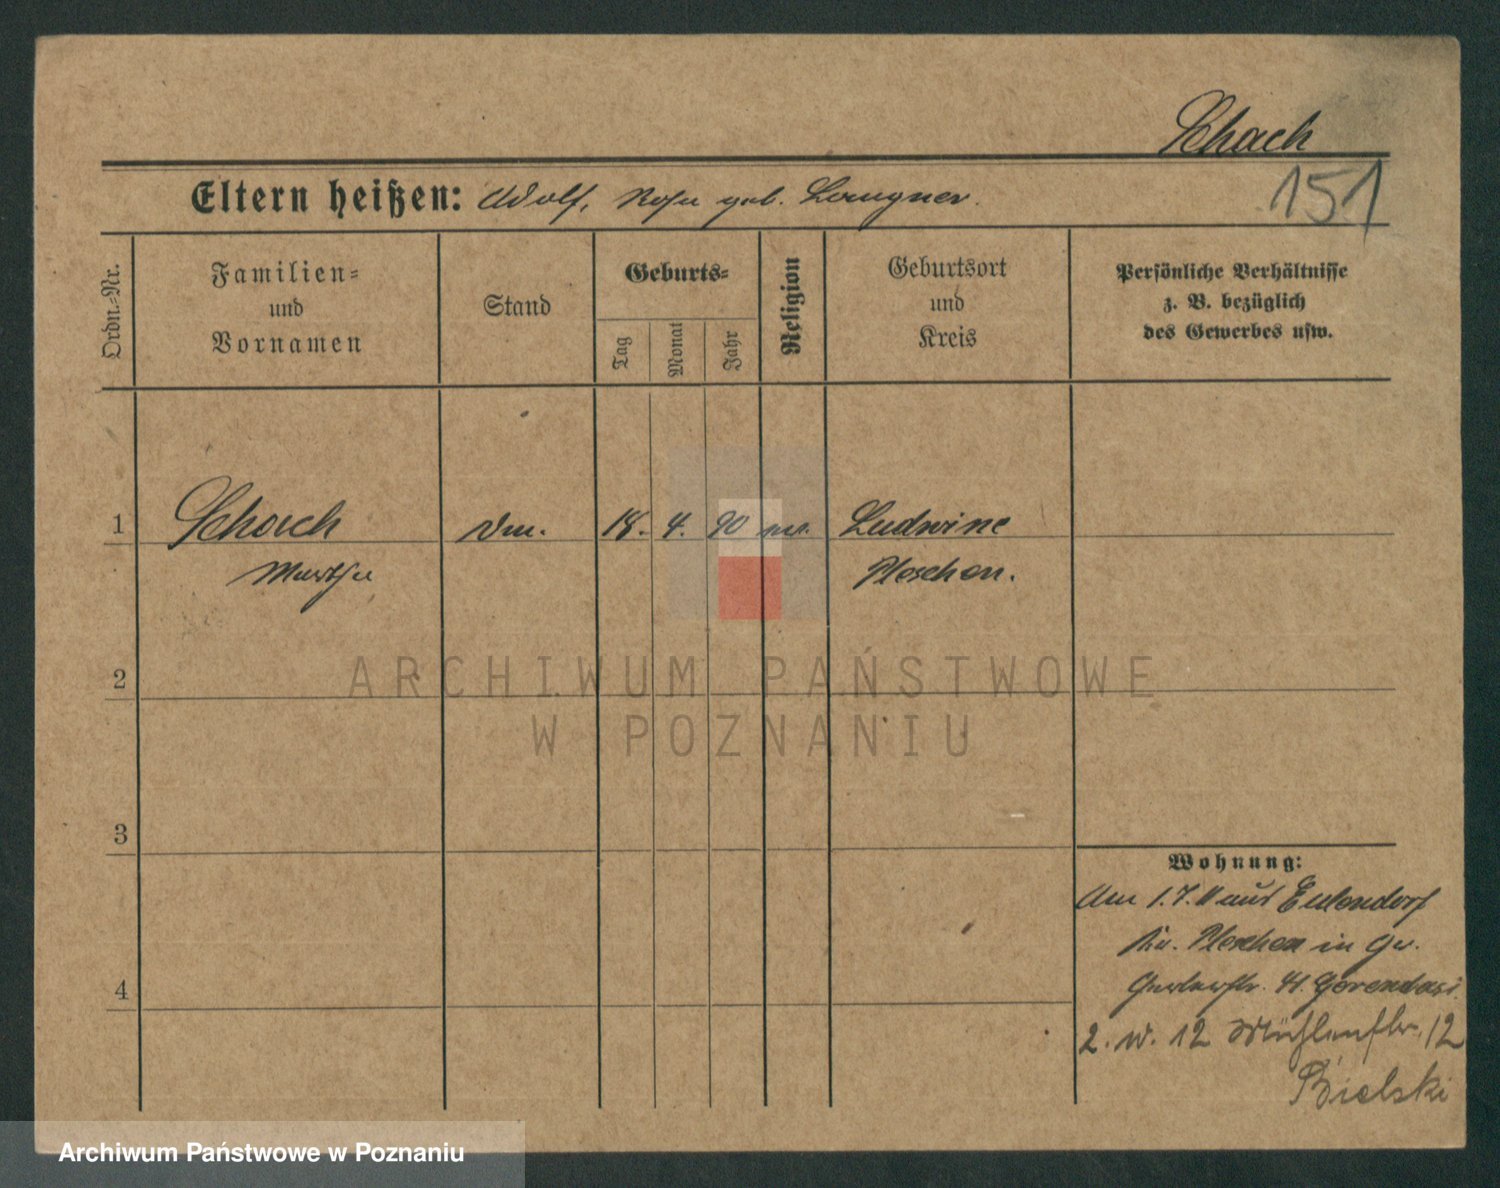 Schach
Eltern heißen: Adolf, Rosa geb. Laugner.
151
Ordn.-Nr.
Familien-
und
Vornamen
Stand
Geburts-
Tag
Monat
Jahr
Religion
Geburtsort
und
Kreis
Persönliche Verhältnisse
z. B. bezüglich
des Gewerbes usw.
1 Schach 18. 4. 90 Ludwine
Martha Pleschen.
2
ARCHIWUM PAŃSTWOWE
W POZNANIU
3
Wohnung:
Am 1.7.11 aus Eulendorf
Kr. Pleschen in
4
2. 12 Mühlenstr. 12
Bielski
Archiwum Państwowe w Poznaniu